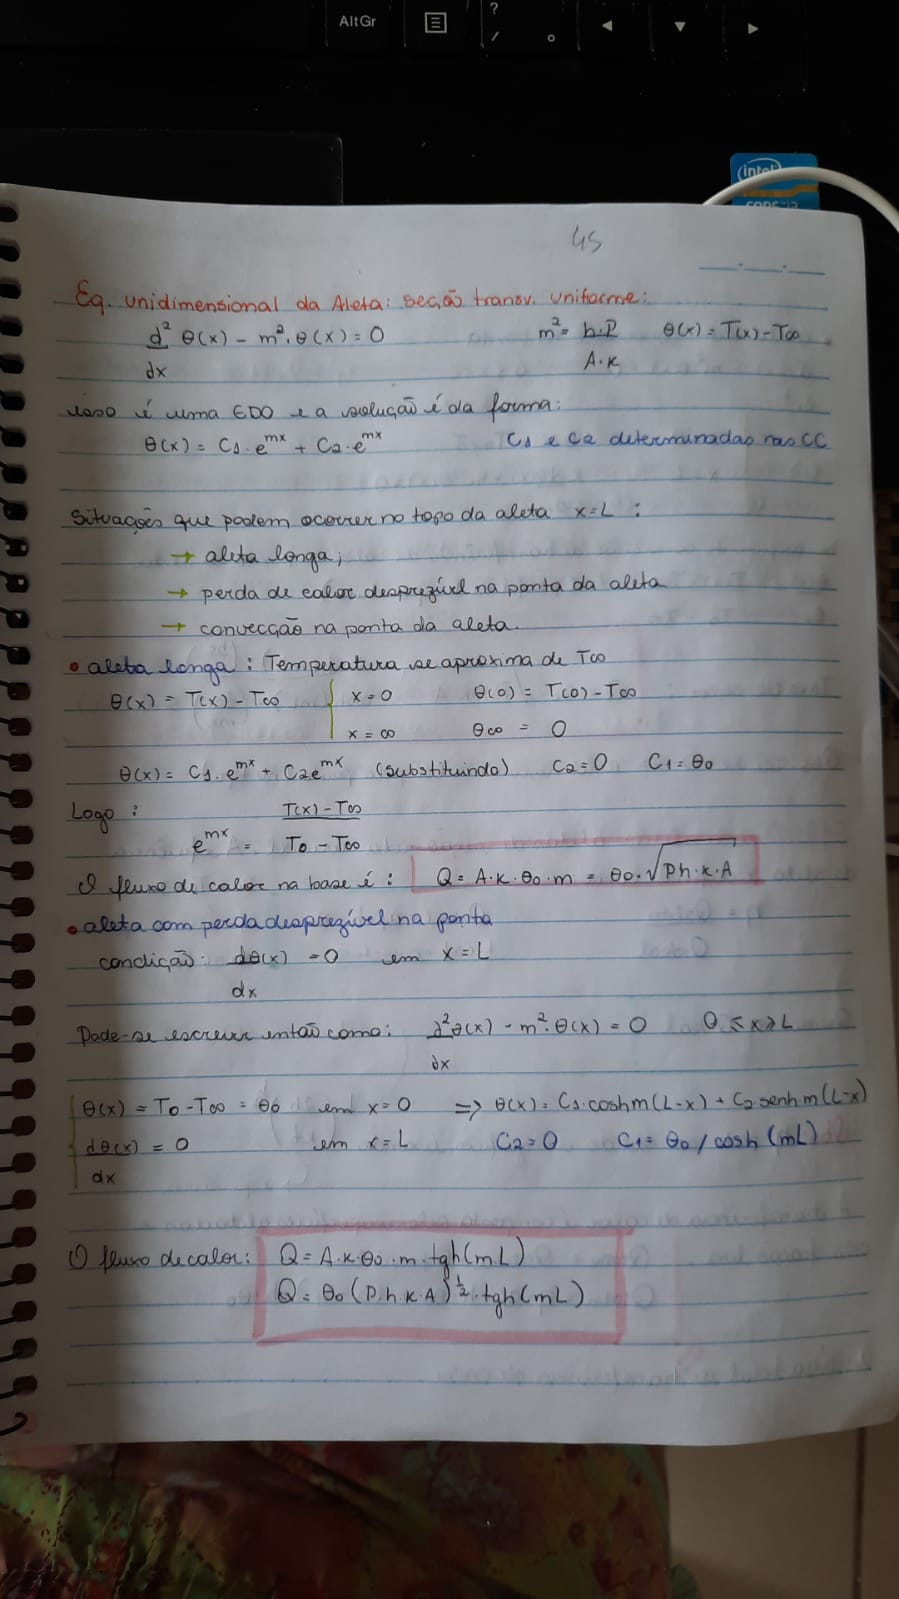 AltGr
?
/
intel
CORE i3
45
Eq. unidimensional da Aleta: seção transv. uniforme:
d² θ(x) - m². θ(x) = 0 m² = h.P θ(x) = T(x) - T∞
dx A.K
isso é uma EDO e a solução é da forma:
θ(x) = C1. e^mx + C2. e^mx C1 e C2 determinadas nas CC
Situações que podem ocorrer no topo da aleta x=L :
→ aleta longa;
→ perda de calor desprezível na ponta da aleta
→ convecção na ponta da aleta.
• aleta longa : Temperatura se aproxima de T∞
θ(x) = T(x) - T∞ { x = 0 θ(0) = T(0) - T∞
x = ∞ θ∞ = 0
θ(x) = C1. e^mx + C2e^mx (substituindo) C2=0 C1= θ0
Logo : T(x) - T∞
e^mx = T0 - T∞
O fluxo de calor na base é : Q = A.K.θ0.m = θ0.√Ph.K.A
• aleta com perda desprezível na ponta
condição: dθ(x) = 0 em x = L
dx
Pode-se escrever então como: d²θ(x) - m².θ(x) = 0 0 ≤ x ≥ L
dx
θ(x) = T0 - T∞ = θ0 em x=0 => θ(x) = C1.coshm(L-x) + C2 senh.m(L-x)
dθ(x) = 0 em x=L C2=0 C1= θ0 / cosh (mL)
dx
O fluxo de calor: Q = A.K.θ0.m.tgh(m.L)
Q = θ0 (P.h.K.A)^½.tgh(mL)